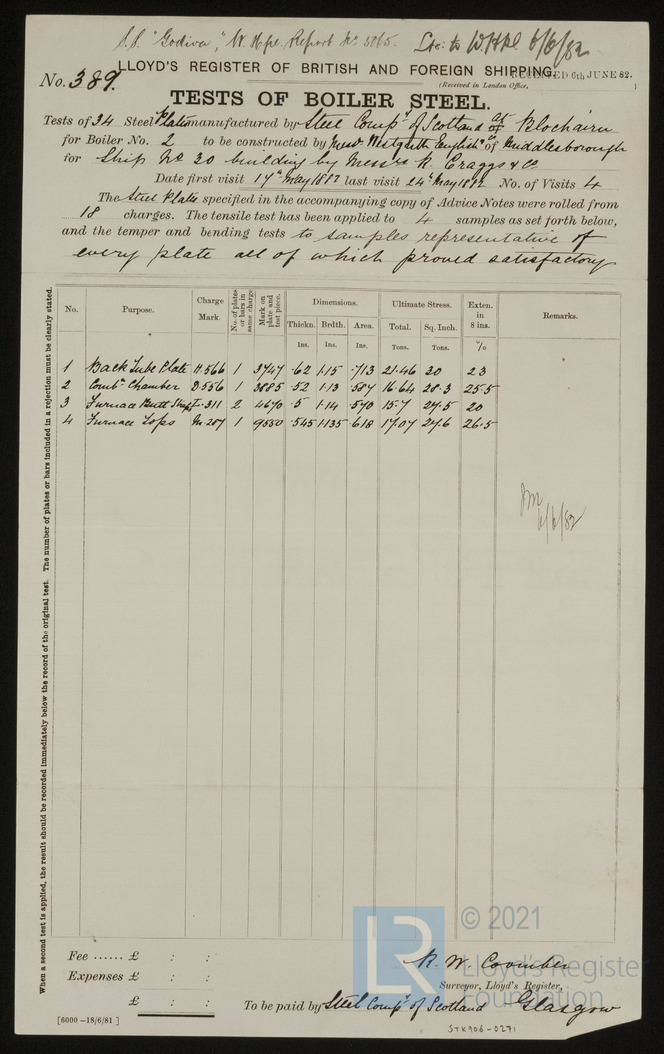 S.S. "Godiva", W. Hpl. Report No 5065. Ltr: to W.Hpl 6/6/82
No. 389.
LLOYD'S REGISTER OF BRITISH AND FOREIGN SHIPPING.
RECEIVED 6th JUNE 82.
(Received in London Office, )
TESTS OF BOILER STEEL.
Tests of 34 Steel Plates manufactured by Steel Compy of Scotland at Blochairn
for Boiler No. 2 to be constructed by Messrs Westgarth English & Co of Middlesborough
for Ship No 30 building by Messrs R. Craggs & Co
Date first visit 17th May 1882 last visit 24th May 1882 No. of Visits 4
The Steel Plates specified in the accompanying copy of Advice Notes were rolled from
18 charges. The tensile test has been applied to 4 samples as set forth below,
and the temper and bending tests to samples representative of
every plate all of which proved satisfactory
No. Purpose. Charge Mark. No. of plates or bars in same charge Mark on plate and test piece. Dimensions. Ultimate Stress. Exten. in 8 ins. Remarks.
Thickn. Brdth. Area. Total. Sq. Inch.
Ins. Ins. Ins. Tons. Tons. %
1 Back Tube Plate H.566 1 3747 .62 1.15 .713 21.46 30 23
2 Combn Chamber D.556 1 3885 .52 1.13 .587 16.64 28.3 25.5
3 Furnace Butt Strips 311 2 4670 .5 1.14 .570 15.7 27.5 20
4 Furnace Tops M.287 1 9550 .545 1.135 .618 17.07 27.6 26.5
6/6/82
When a second test is applied, the result should be recorded immediately below the record of the original test. The number of plates or bars included in a rejection must be clearly stated.
Fee ...... £ : :
Expenses £ : :
£ : :
R. W. Coomber
Surveyor, Lloyd's Register,
To be paid by Steel Compy of Scotland Glasgow
[6000 -18/6/81 ]
STK906-0271
LR
© 2021
Lloyd's Register
Foundation